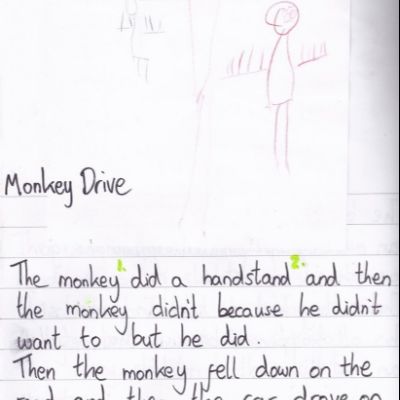 Monkey Drive
The monkey 1. did a handstand 2. and then
the monkey didn't because he didn't
want to but he did.
Then the monkey fell down on the
and then the car drove on